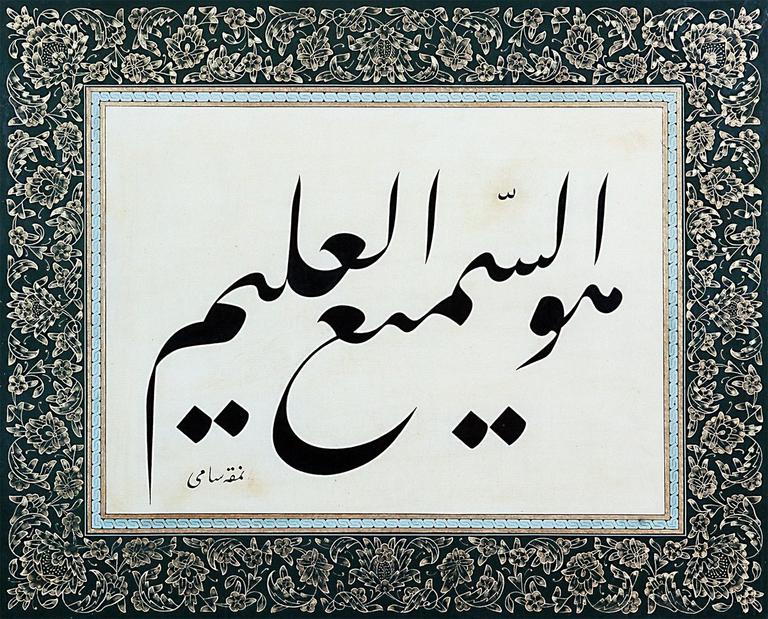 هو السّميع العليم
نمقه سامی